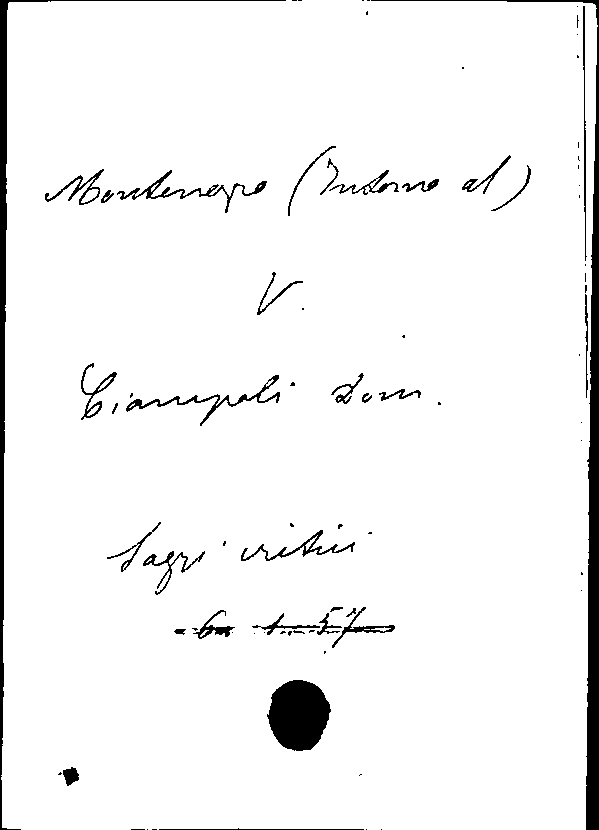 Montenegro (Intorno al)
V.
Ciampoli Dom.
Saggi critici
6 1 57